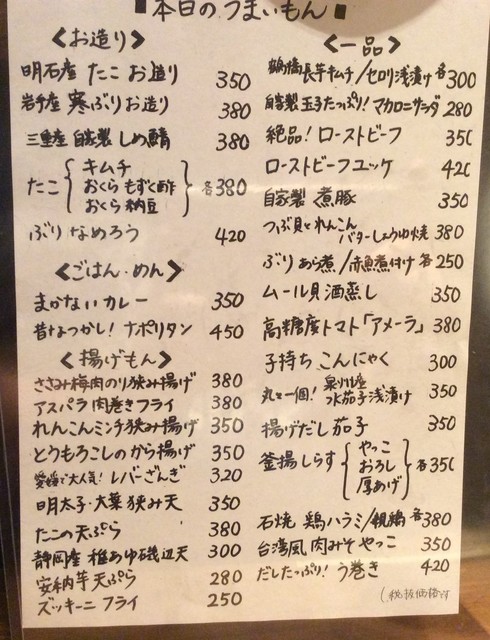 ■本日のうまいもん■
<お造り>
明石産 たこ お造り 350
岩手産 寒ぶりお造り 380
三重産 自家製 しめ鯖 380
たこ { キムチ
おくら もずく酢 各380
おくら 納豆
ぶり なめろう 420
<ごはん・めん>
まかないカレー 350
昔なつかし! ナポリタン 450
<揚げもん>
ささみ梅肉のり狭み揚げ 380
アスパラ肉巻きフライ 380
れんこんミンチ狭み揚げ 350
とうもろこしのから揚げ 350
愛媛で大人気! レバーざんぎ 320
明太子・大葉 狭み天 350
たこの天ぷら 380
静岡産 稚あゆ磯辺天 300
安納芋天ぷら 280
ズッキーニ フライ 250
<一品>
鶴橋長芋キムチ/セロリ浅漬け 各300
自家製玉子たっぷり! マカロニサラダ 280
絶品! ローストビーフ 350
ローストビーフユッケ 420
自家製 煮豚 350
つぶ貝とれんこん
バターしょうゆ焼 380
ぶり あら煮/赤魚煮付け 各250
ムール貝 酒蒸し 350
高糖度トマト「アメーラ」 380
子持ち こんにゃく 300
丸と一個! 泉州産
水茄子浅漬け 350
揚げだし 茄子 350
釜揚しらす { やっこ
おろし 各350
厚あげ
石焼 鶏ハラミ/親鶏 各380
台湾風 肉みそ やっこ 350
だしたっぷり! う巻き 420
(税抜価格です